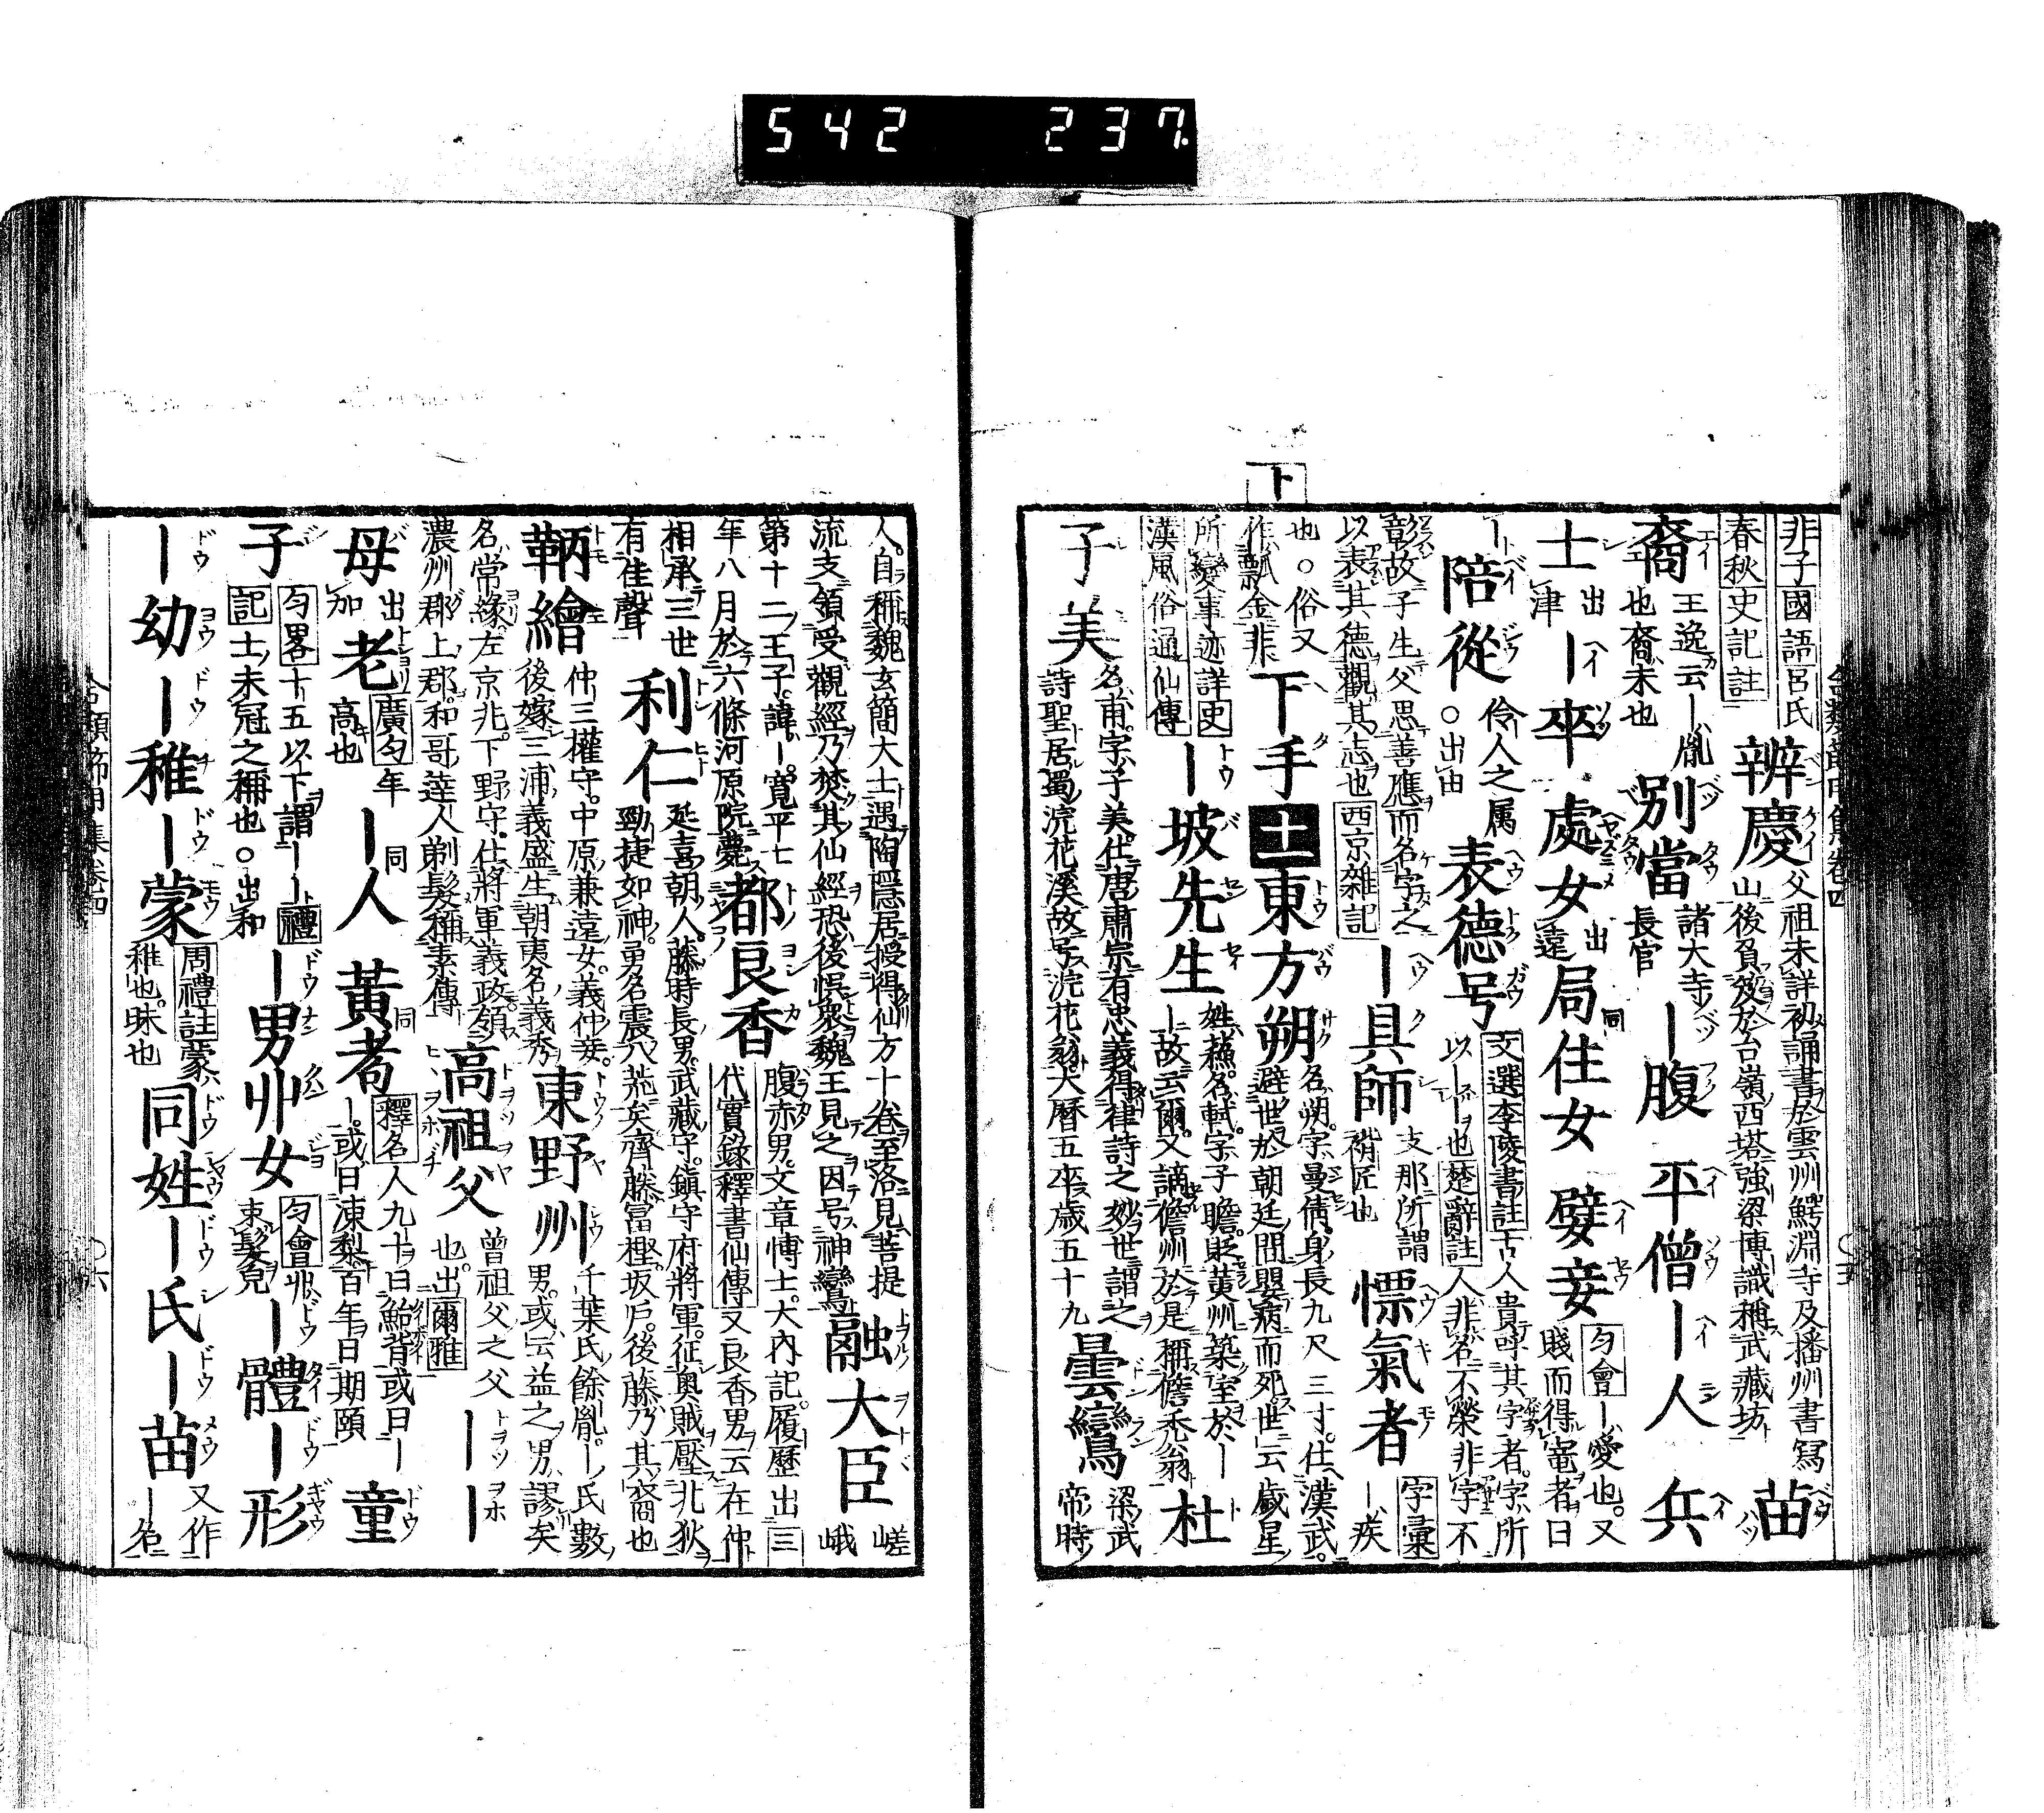 542 237.
ト
非子國語呂氏春秋史記註
辨慶 父祖未詳初誦書於雲州鰐淵寺及播州書寫山後負笈於台嶺西塔強梁博識稱武藏坊
苗裔 王逸云ー胤也裔末也
別當 諸大寺長官
ー腹
平僧
ー人
兵士 出津
ー卒
處女 出遠
局 同
住女
嬖妾 匀會ー愛也。又賤而得寵者曰ー
陪從 伶人之属○出由
表德号 文選李陵書註古人貴呼其字者。字所以ー也楚辭註人非名不榮非字不彰故子生父思善應而名字之以表其德觀其志也西京雜記
ー具師 支那所謂褙匠也
慓氣者 字彙ー疾也。○俗又作瓢金非
下手
十
東方朔 名朔。字曼倩。身長九尺三寸。仕漢武。避世於朝廷間嬰病而死世云歲星所變事迹詳史漢風俗通仙傳
ー坡先生 姓蘇。名軾。字子瞻。貶黃州築室於ー故云爾。又謫儋州於是稱儋禿翁
杜子美 名甫。字子美仕唐肅宗有忠義得律詩之妙世謂之詩聖居蜀浣花溪故号浣花翁大曆五卒歲五十九
曇鸞 梁武帝時
人。自稱魏玄簡大士遇陶隱居授得仙方十卷至洛見菩提流支領受觀經乃焚其仙經恐後悞衆魏王見之因号神鸞
融大臣 嵯峨第十二王子。諱ー。寬平七年八月於六條河原院薨
都良香 腹赤男。文章博士。大內記履歷出三代實錄釋書仙傳又良香男云在仲相承三世有佳聲
利仁 延喜朝人。藤時長男。武藏守。鎮守府將軍。征奧賊壓北狄勁捷如神。勇名震八荒矣齊藤富樫坂戶。後藤乃其裔也
鞆繪 仲三權守。中原兼遠女。義仲妾。後嫁三浦義盛生朝夷名義秀
東野州 千葉氏餘胤。ー氏數男。或云益之男謬矣名常緣左京兆。下野守。仕將軍義政領濃州郡上郡。和哥達人剃髮稱素傳
高祖父 曾祖父之父也。出爾雅
ーー母 出加
老 廣匀年高也
ー人 同
黃耇 同釋名人九十曰鮐背或曰ーー。或曰凍梨百年曰期頤
童子 匀畧十五以下謂ーー禮記士未冠之稱也。○出和
ー男
丱女 匀會丱束髮皃
ー體
ー形
ー幼
ー稚
ー蒙 周禮註蒙稚也。昧也
同姓
ー氏
ー苗 又作ー名
合類節用集卷四